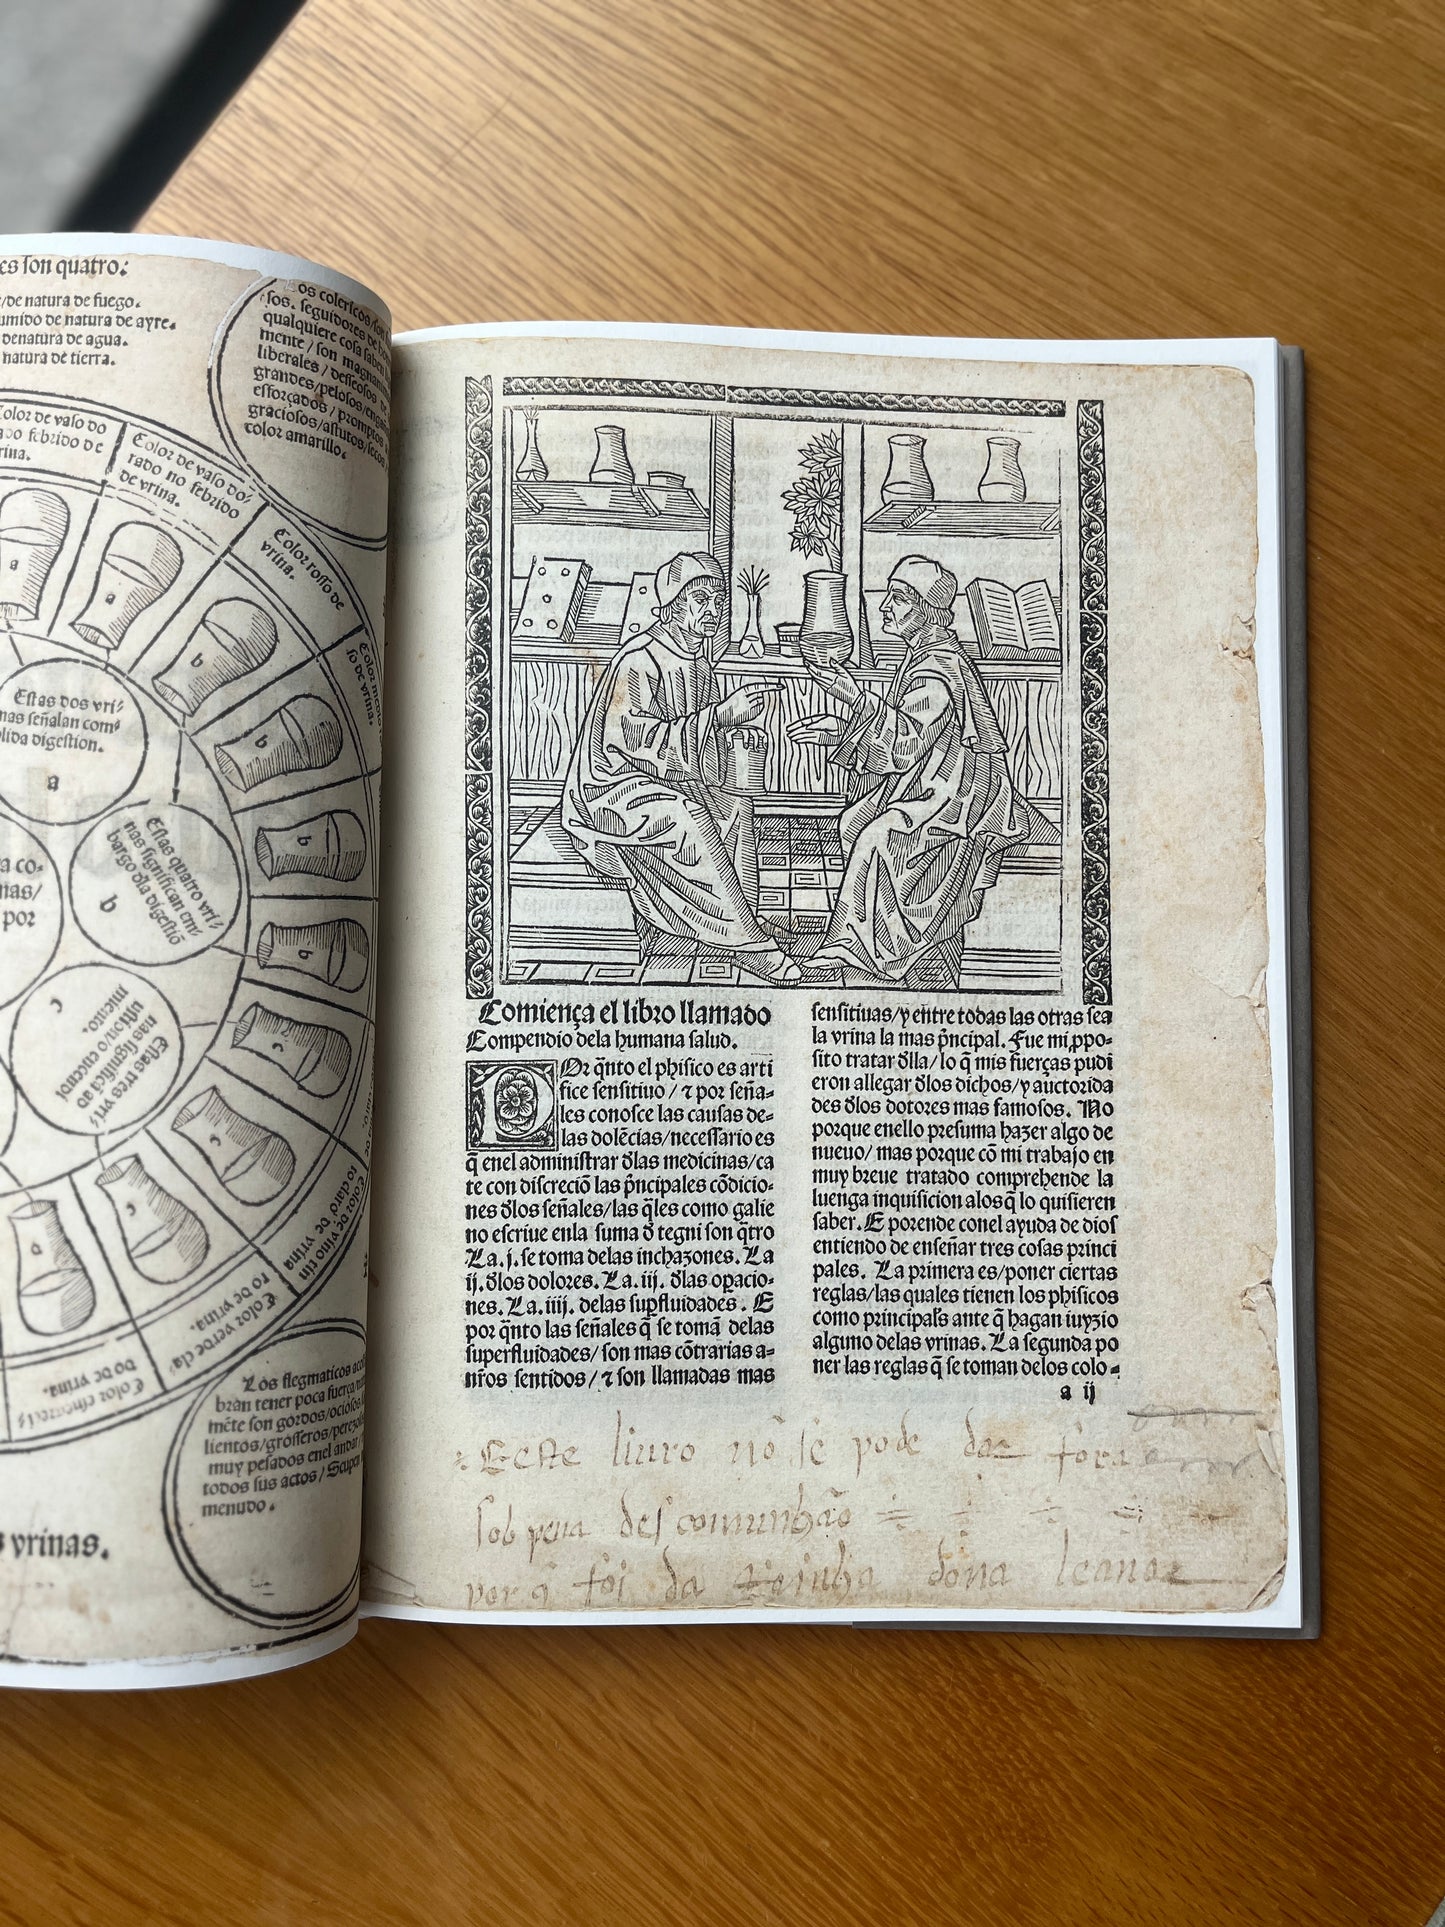 es son quatro:
/de natura de fuego.
umido de natura de ayre.
denatura de agua.
natura de tierra.
os colericos son
sos. seguidores de
qualquiere cosa saben
mente / son magnani
liberales / desseosos de
grandes/pelosos/engaña
esforçados / promptos
graciosos/astutos/secos
color amarillo.
Color de vaso do
rado febrido de
vrina.
Color de vaso do⸗
rado no febrido
de vrina.
Color rosso de
vrina.
Color meno
so de vrina.
a
a
b
b
b
b
c
c
c
Estas dos vri⸗
nas señalan com⸗
plida digestion.
a
Estas quatro vri⸗
nas significan em⸗
bargo dla digestiõ
b
Estas tres vri⸗
nas significã ad
ustiõ/o encendi
miento.
c
a co⸗
nas/
por
Color de vino tin
to claro de
vrina
Color verde cla⸗
ro de vrina.
do de vrina.
Los flegmaticos acost
bran tener poca fuerça/
mẽte son gordos/ociosos
lientos/grosseros/perezos
muy pesados enel andar/
todos sus actos / Scupen
menudo.
vrinas.
Comiença el libro llamado
Compendio dela humana salud.
POr q̃nto el phisico es arti
fice sensitiuo / ⁊ por seña⸗
les conosce las causas de⸗
las dolẽcias/necessario es
q̃ enel administrar dlas medicinas/ca
te con discreciõ las p̃ncipales cõdicio⸗
nes dlos señales/las q̃les como galie
no escriue enla suma d tegni son q̃tro
La.j. se toma delas inchazones. La
ij. dlos dolores. La. iij. dlas opacio⸗
nes. La. iiij. delas sup̃fluidades. E
por q̃nto las señales q̃ se tomã delas
superfluidades/ son mas cõtrarias a⸗
nr̃os sentidos / ⁊ son llamadas mas
sensitiuas/y entre todas las otras sea
la vrina la mas p̃ncipal. Fue mi ꝓpo⸗
sito tratar dlla/ lo q̃ mis fuerças pudi
eron allegar dlos dichos/y auctorida
des dlos dotores mas famosos. No
porque enello presuma hazer algo de
nueuo/ mas porque cõ mi trabajo en
muy breue tratado comprehende la
luenga inquisicion alos q̃ lo quisieren
saber. E porende conel ayuda de dios
entiendo de enseñar tres cosas princi
pales. La primera es/poner ciertas
reglas/las quales tienen los phisicos
como principal̃s ante q̃ hagan iuyzio
alguno delas vrinas. La segunda po
ner las reglas q̃ se toman delos colo⸗
a ij
Este liuro nõ se pode dar fora
sob pena descomunhão
por q̃ foi da Rainha dona leanor